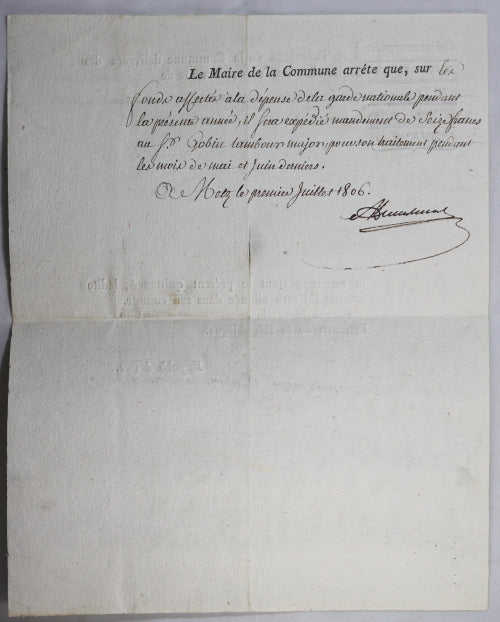 Le Maire de la Commune arrête que, sur les
fonds affectés à la dépense de la garde nationale pendant
la présente année, il sera expédié mandement de Seize francs
au Sr. Gobin tambour major, pour son traitement pendant
les mois de mai et Juin derniers.
A Metz le premier Juillet 1806.